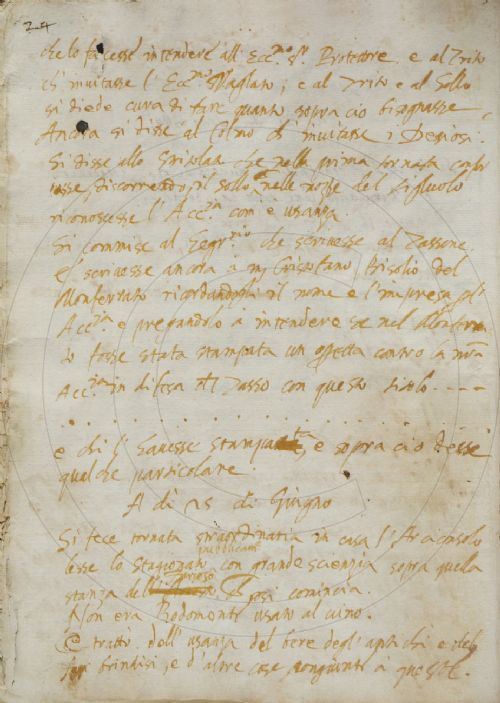 24
che lo facesse intendere all' Ecc.mo S.r Protettore, e al Trito
ch' invitasse l' Ecc.mo Magliato; e al Trito e al Sollo
si diede cura di fare quanto sopra ciò bisognasse,
Ancora si disse al Colmo ch' invitasse i Desiosi.
Si disse allo che nella prima tornata
discorrendo, il Sollo nelle nozze del figluolo
riconoscesse l' Acc.ia com' è usanza
Si commise al Segr.rio che scrivesse al Tassone.
E' scrivesse ancora à m. Cristofano del
Monferrato ricordandogli il nome e l' impresa
Acc.ia e pregandolo à intendere se nel
to fosse stata stampata un' contro à
Acc.ia in difesa del Tasso con questo titolo - - - -
. . . . . . . . . . . . . . . .
e chi l' havesse stampata, e sopra ciò desse
qualche particolare.
A dì 25 di Giugno
Si fece tornata straordinaria in casa l' Arciconsolo
pubblicam.te
lesse lo Stagionato con grande scienzia sopra quella
stanza dell' comincia.
Non era Rodomonte usato al vino.
E trattò dell' usanza del bere degl' antichi e de
brindisi, e d' altre cose congiunte à queste.